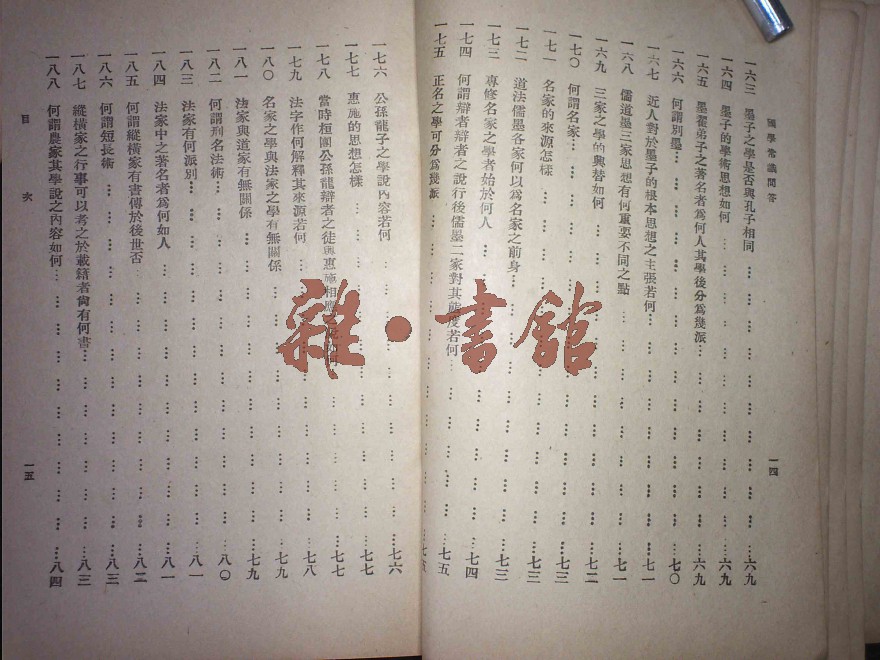 國學常識問答
一四
一六三 墨子之學是否與孔子相同……六九
一六四 墨子的學術思想如何……六九
一六五 墨翟弟子之著名者爲何人其學後分爲幾派……六九
一六六 何謂別墨……七〇
一六七 近人對於墨子的根本思想之主張若何……七一
一六八 儒道墨三家思想有何重要不同之點……七一
一六九 三家之學的興替如何……七二
一七〇 何謂名家……七三
一七一 名家的來源怎樣……七三
一七二 道法儒墨各家何以爲名家之前身……七三
一七三 專修名家之學者始於何人……七四
一七四 何謂辯者辯者之說行後儒墨二家對其態度若何……七五
一七五 正名之學可分爲幾派……七五
一七六 公孫龍子之學說內容若何……七六
一七七 惠施的思想怎樣……七七
一七八 當時桓團公孫龍辯者之徒與惠施相應……七七
一七九 法字作何解釋其來源若何……七八
一八〇 名家之學與法家之學有無關係……七九
一八一 法家與道家有無關係……七九
一八二 何謂刑名法術……八〇
一八三 法家有何派別……八一
一八四 法家中之著名者爲何如人……八一
一八五 何謂縱橫家有書傳於後世否……八二
一八六 何謂短長術……八三
一八七 縱橫家之行事可以考之於載籍者尙有何書……八三
一八八 何謂農家其學說之內容如何……八四
目次
一五
雜·書館